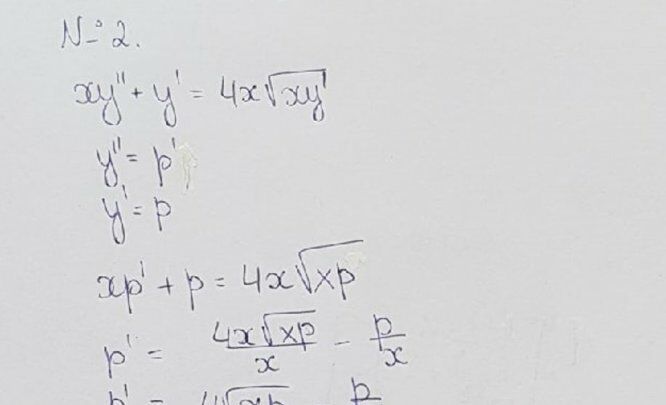 № 2.
xy'' + y' = 4x√(xy')
y'' = p'
y' = p
xp' + p = 4x√(xp)
p' = 4x√(xp)/x - p/x